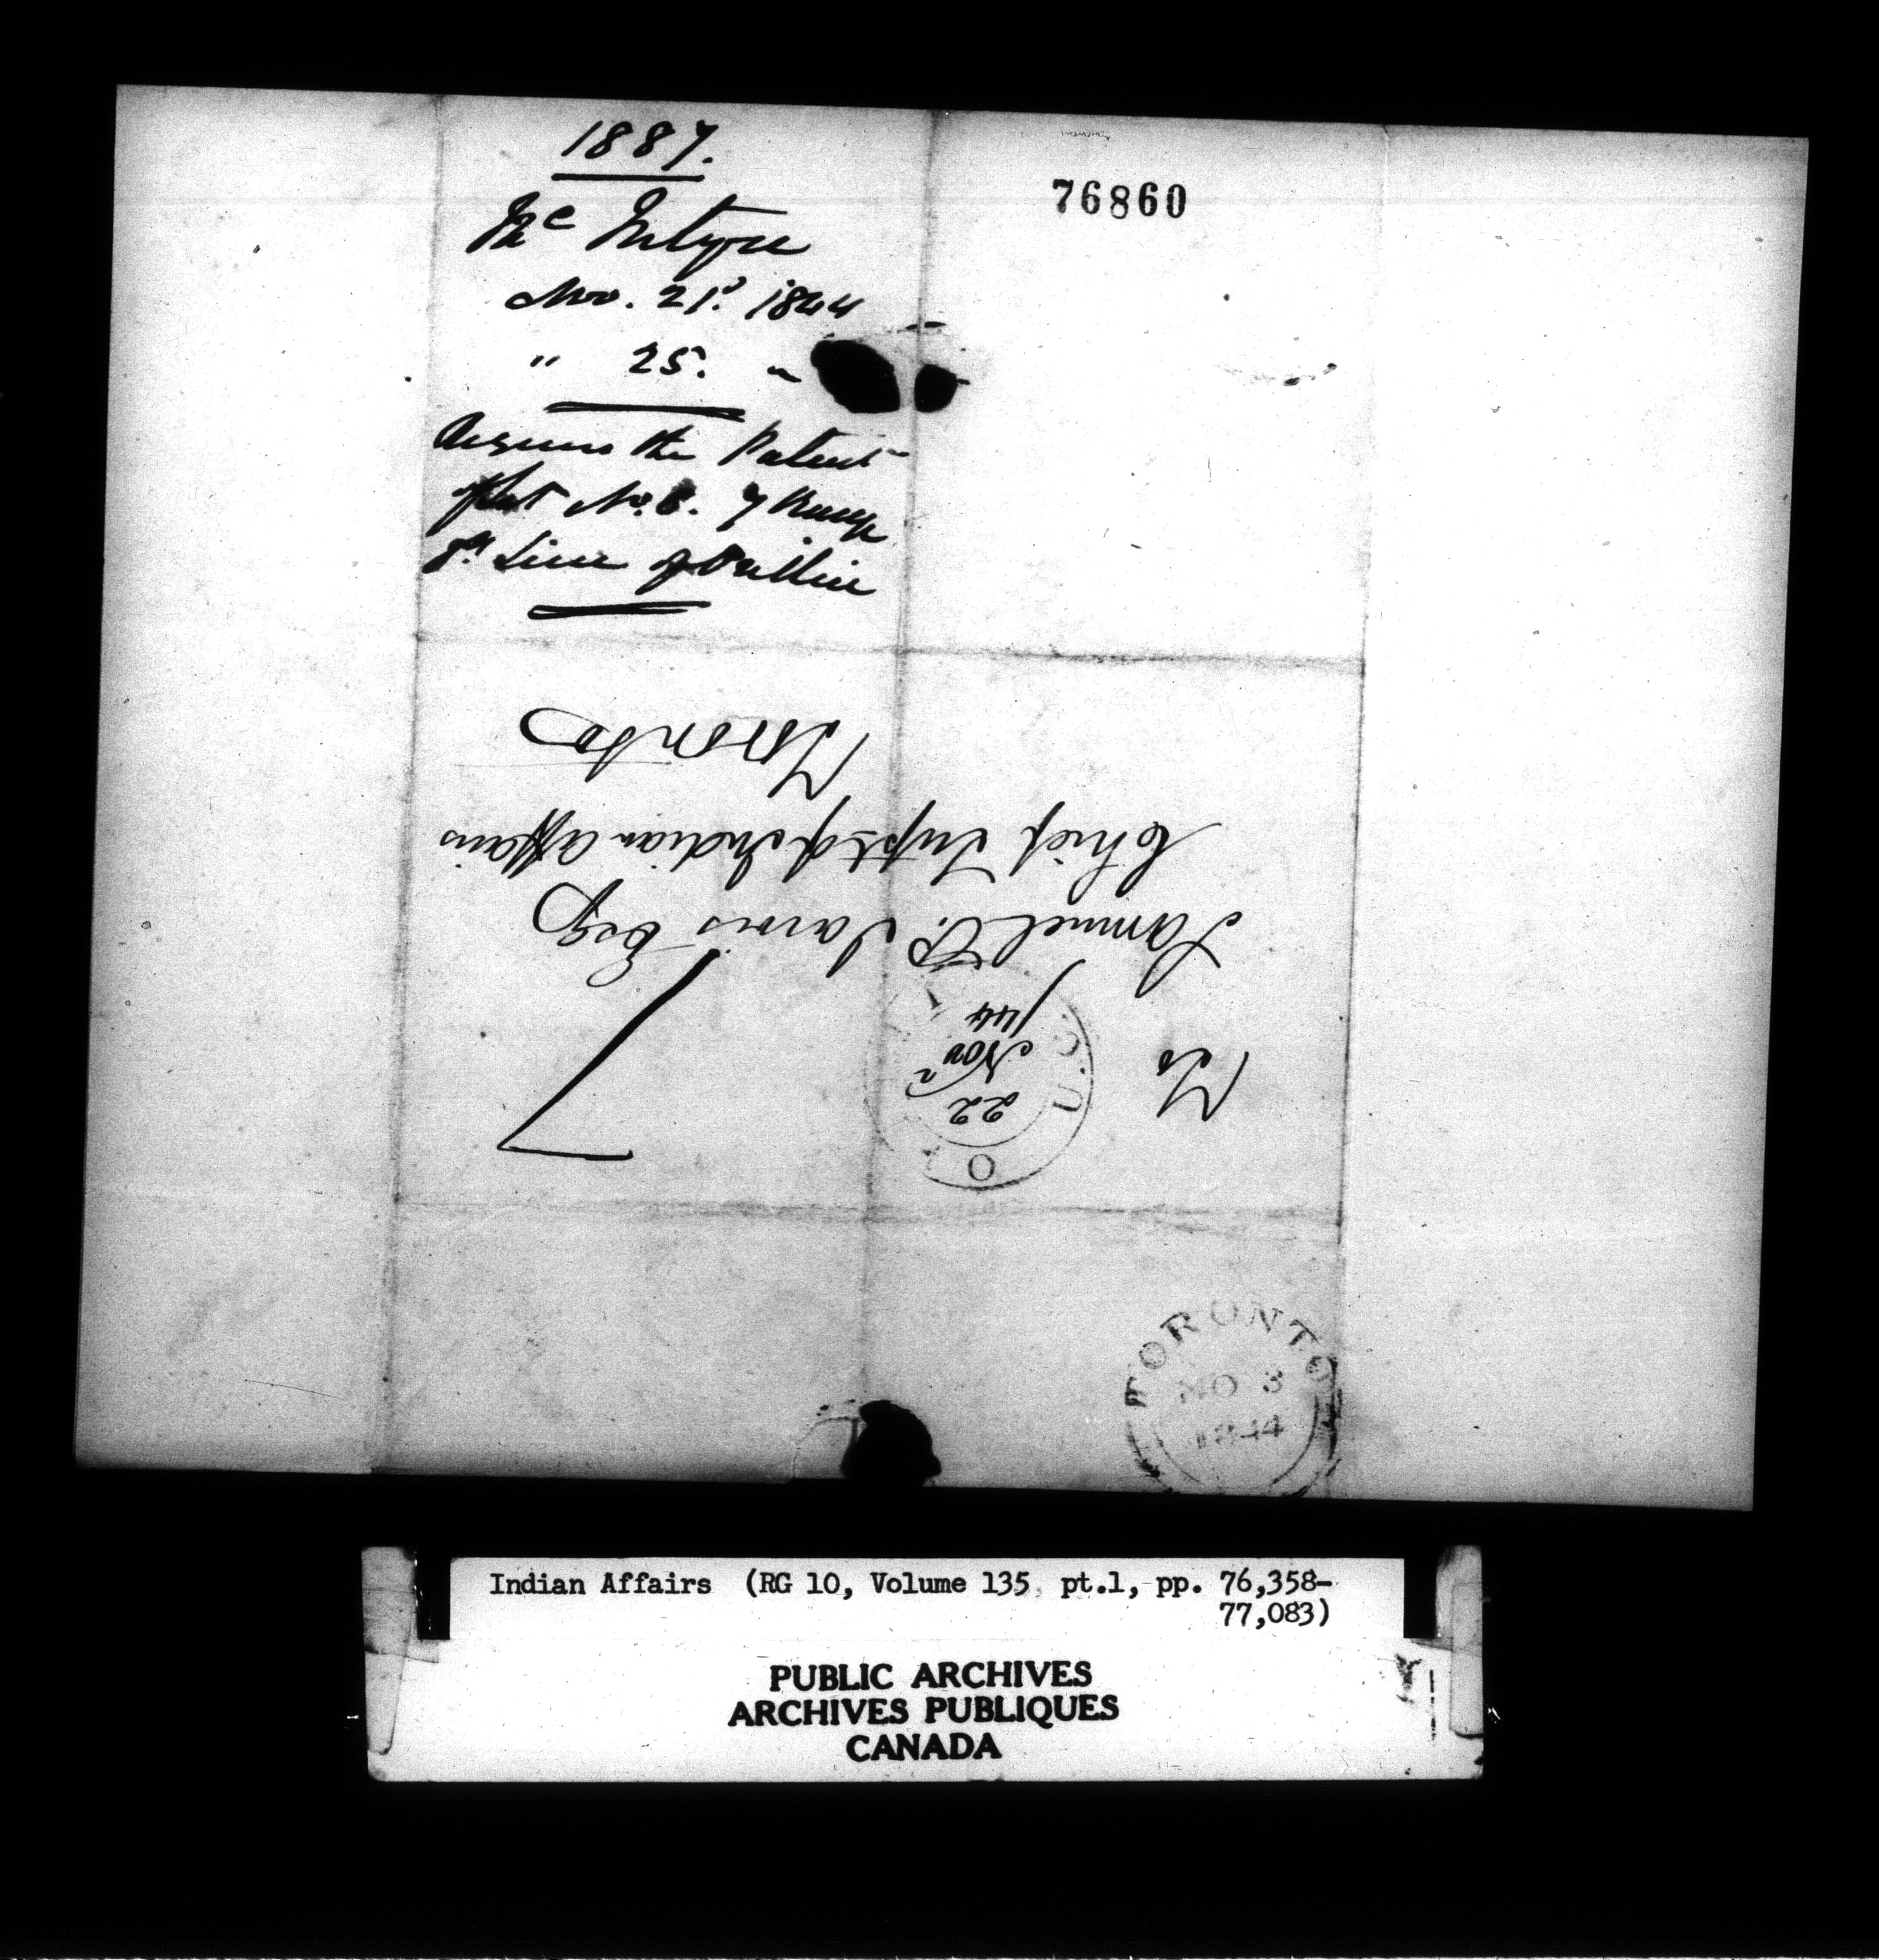 1887.
76860
Mc Intyre
Nov. 21st 1844
" 25. "
the Patent
of Lot No. 6. 7 Range
Line of Orillia
To
Samuel P. Jarvis Esq
Chief Supt of Indian Affairs
Toronto
22
Nov
44
TORONTO
NO 3
1844
Indian Affairs (RG 10, Volume 135 pt.1, pp. 76,358-
77,083)
PUBLIC ARCHIVES
ARCHIVES PUBLIQUES
CANADA